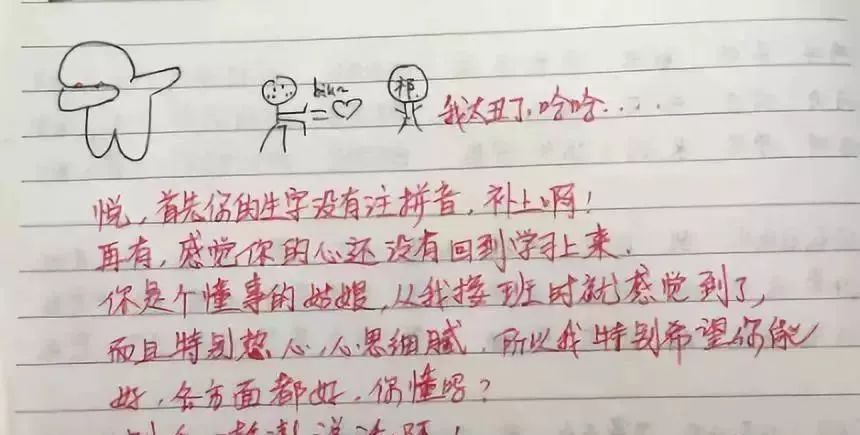 biu~
祁
我太丑了,哈哈....
悦,首先你的生字没有注拼音,补上啊!
再有,感觉你的心还没有回到学习上来.
你是个懂事的姑娘,从我接班时就感觉到了,
而且特别热心,心思细腻.所以我特别希望你能
好,各方面都好,你懂吗?